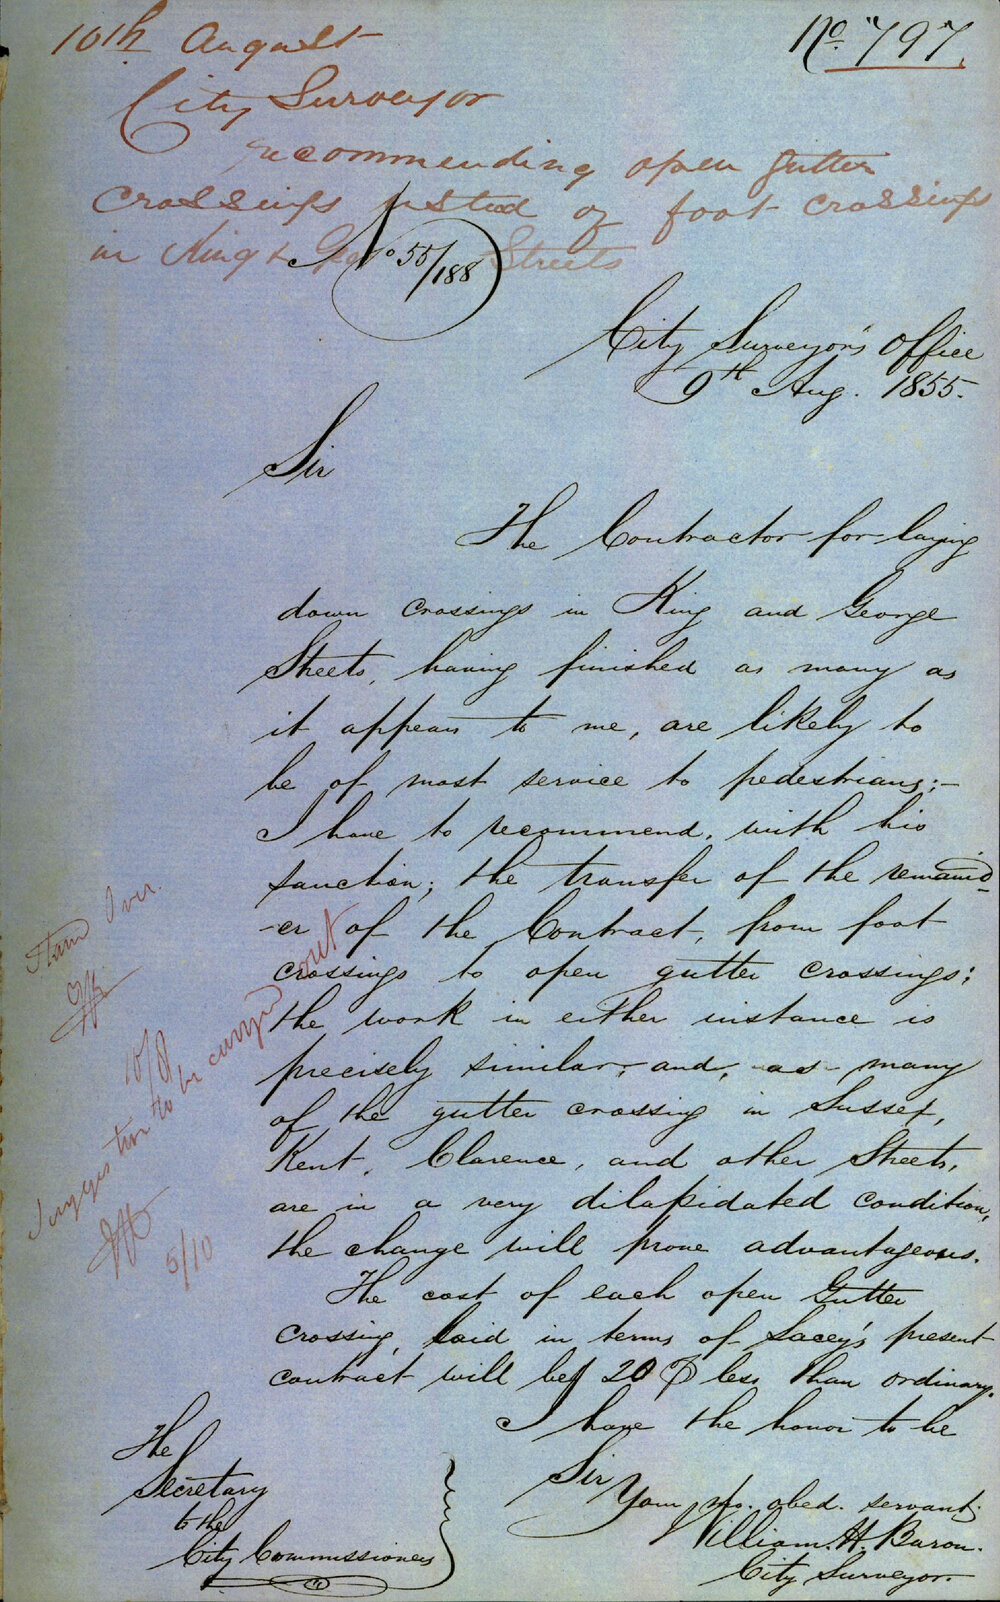 No. 797.
10th August
City Surveyor
recommending open gutter
crossings instead of foot crossings
in King & Geo Streets
No 55/188
City Surveyor's Office
9th Aug. 1855.
Sir
The Contractor for laying
down crossings in King and George
Streets, having finished as many as
it appears to me, are likely to
be of most service to pedestrians;-
I have to recommend, with his
sanction; the transfer of the remaind-
-er of the Contract, from foot
crossings to open gutter crossings;
the work in either instance is
precisely similar, and, as many
of the gutter crossing in Sussex,
Kent, Clarence, and other Streets,
are in a very dilapidated condition,
the change will prove advantageous.
The cost of each open Gutter
Crossing, laid in terms of Lacey's present
contract will be 20 less than ordinary.
I have the honor to be
Sir
Your mo. obed. servant
William. H. Baron.
City Surveyor.
The
Secretary
to the
City Commissioners
Stand Over.
10/8
Suggestion to be carried out
5/10